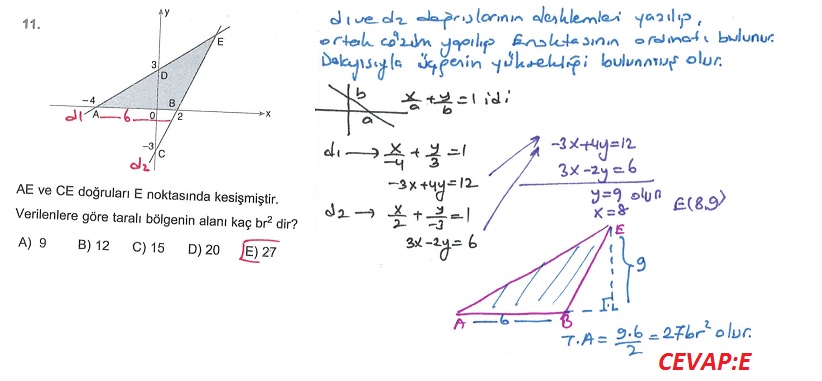 11.
y
E
3
D
-4
B
d1 A 6 0 2 x
-3
C
d2
AE ve CE doğruları E noktasında kesişmiştir.
Verilenlere göre taralı bölgenin alanı kaç br² dir?
A) 9 B) 12 C) 15 D) 20 E) 27
d1 ve d2 doğrularının denklemleri yazılıp,
ortak çözüm yapılıp E noktasının ordinatı bulunur.
Dolayısıyla üçgenin yüksekliği bulunmuş olur.
b
a
x/a + y/b = 1 idi
d1 → x/-4 + y/3 = 1
-3x+4y=12
d2 → x/2 + y/-3 = 1
3x-2y=6
-3x+4y=12
3x-2y=6
y=9 olur
x=8
E(8,9)
E
9
A 6 B
T.A = 9.6/2 = 27br² olur.
CEVAP:E